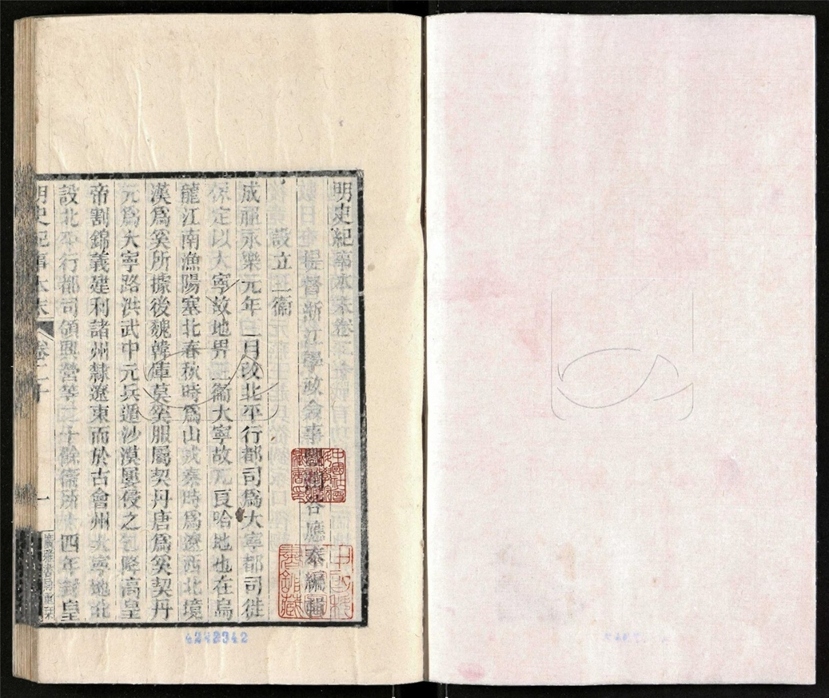 明史紀事本末卷二十
提督浙江學政僉事豐潤谷應泰編輯
設立三衛
成祖永樂元年三月改北平行都司爲大寧都司徙
保定以大寧故地畀三衛大寧故兀良哈地也在烏
龍江南漁陽塞北春秋時爲山戎秦時爲遼西北境
漢爲奚所據後魏韓庫莫奚服屬契丹唐爲奚契丹
元爲大寧路洪武中元兵遁沙漠屢侵之 高皇
帝割錦義建利諸州隸遼東而於古會州大寧地北
設北平行都司領興營等二十餘衛 四年封皇
明史紀事本末 卷二十 一
4242342